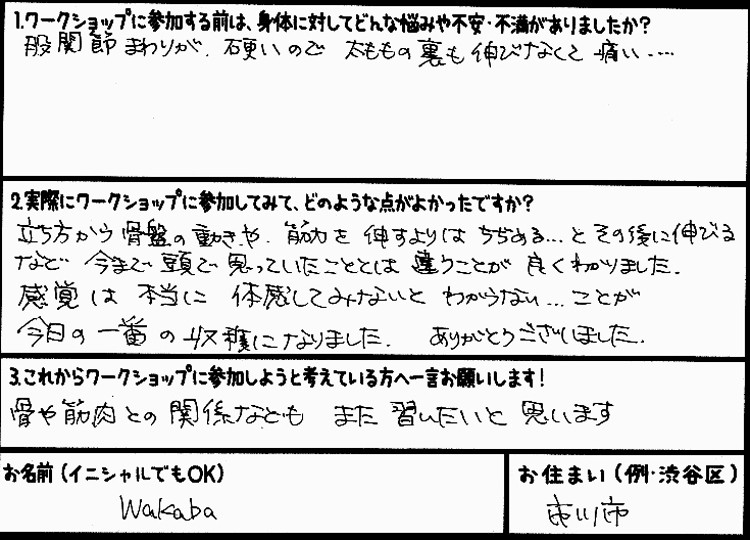 1.ワークショップに参加する前は、身体に対してどんな悩みや不安・不満がありましたか?
股関節まわりが、硬いので 太ももの裏も伸びなくて 痛い……
2.実際にワークショップに参加してみて、どのような点がよかったですか?
立ち方から骨盤の動きや、筋肉を 伸すよりは ちぢめる…と その後に伸びる
など 今まで頭で思っていたこととは 違うことが 良くわかりました.
感覚は 本当に 体感してみないと わからない…ことが
今日の一番の収穫になりました. ありがとうございました.
3.これからワークショップに参加しようと考えている方へ一言お願いします!
骨や筋肉との関係なども また 習いたいと 思います
お名前(イニシャルでもOK)
Wakaba
お住まい(例・渋谷区)
市川市